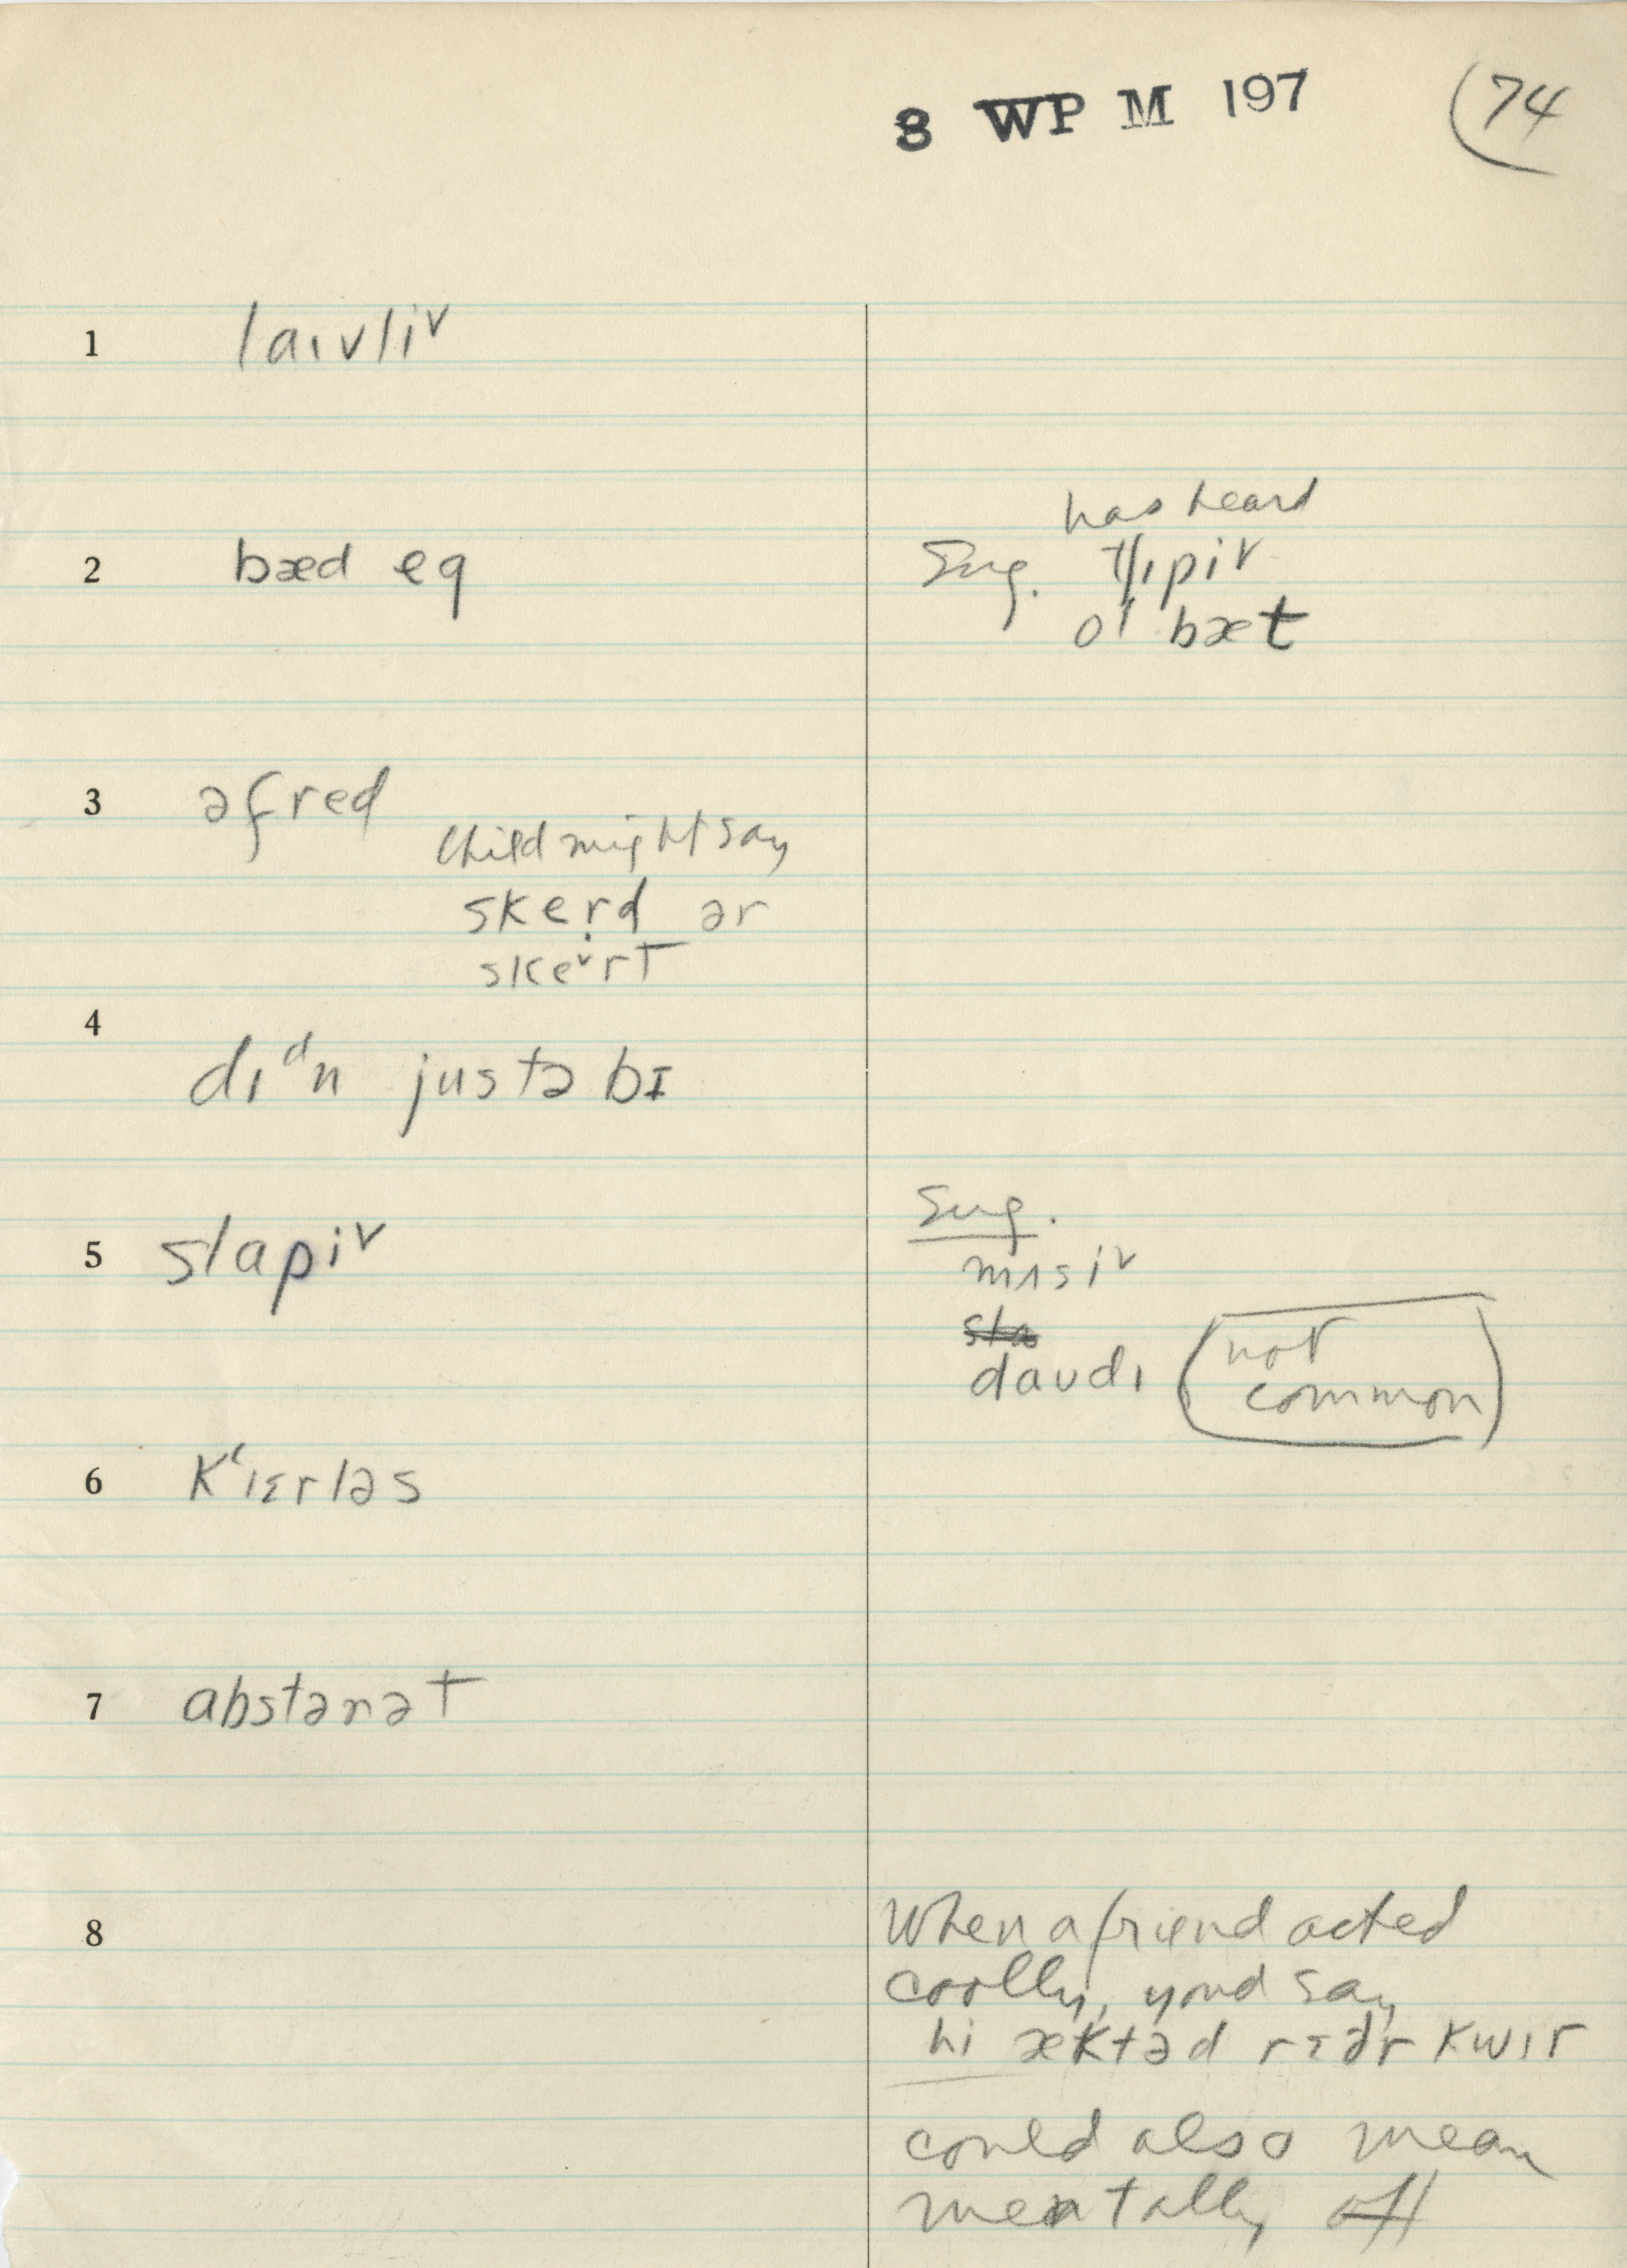 8 WP M 197 (74
1 laɪvliᵛ
has heard
2 bæd eg Sug. tʃɪpiᵛ
ol bæt
3 əfred
Child might say
skerd ər
skeᵛrt
4
dɪᵈn justə bɪ
Sug.
5 slapiᵛ mʌsiᵛ
sla
daudɪ (not
common)
6 kʻɪɛrləs
7 abstənət
8 When a friend acted
coolly, youd say
hi æktəd rɛðr kwɪr
could also mean
mentally off